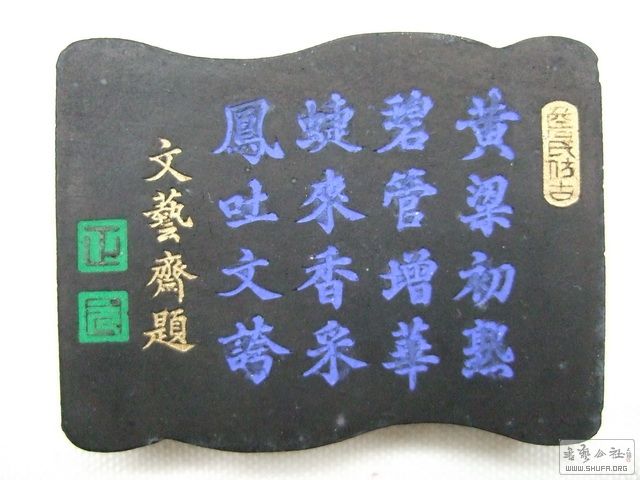 詹氏仿古
黃梁初熟
碧管增華
蜨來香采
鳳吐文誇
文藝齋題
書藝公社
WWW.SHUFA.ORG